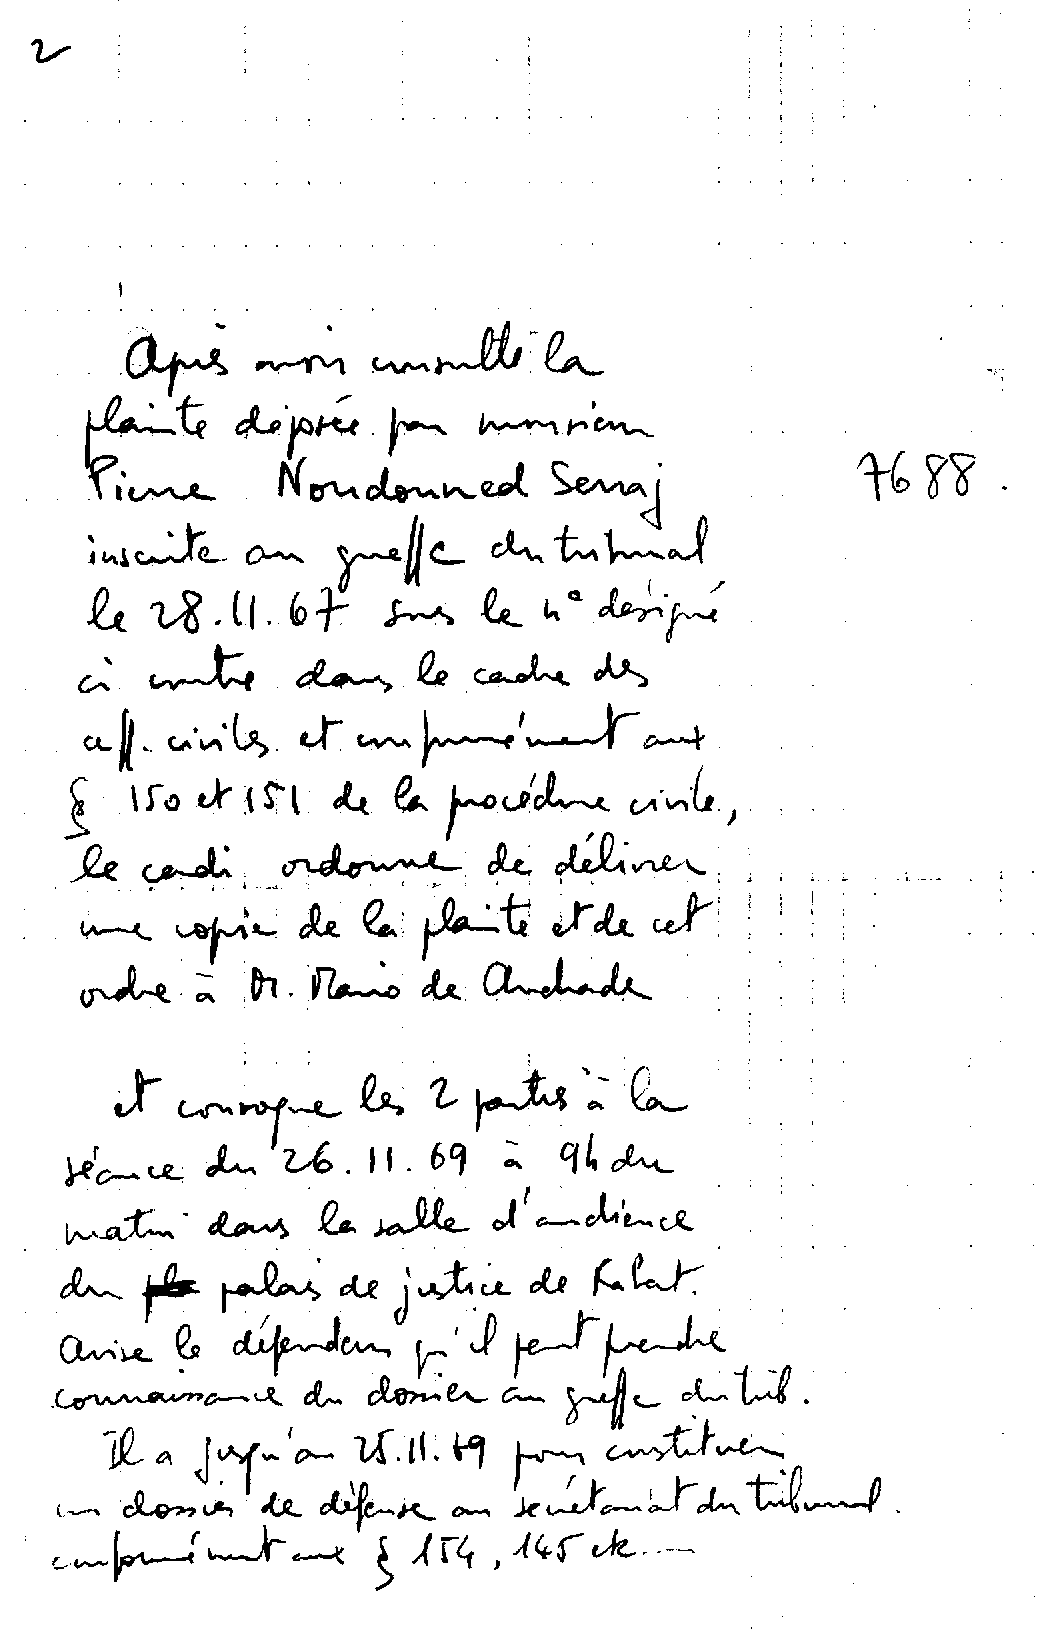 2
Après avoir consulté la
plainte déposée par monsieur
Pierre Nourdonned Serraj
7688.
inscrite au greffe du tribunal
le 28.11.67 sous le n° désigné
ci contre dans le cadre des
aff. civiles et conformément aux
§ 150 et 151 de la procédure civile,
le cadi ordonne de délivrer
une copie de la plainte et de cet
ordre à M. Mario de Andrade
et convoque les 2 parties à la
séance du 26.11.69 à 9h du
matin dans la salle d'audience
du palais de justice de Rabat.
Avise le défendeur qu'il peut prendre
connaissance du dossier au greffe du trib.
Il a jusqu'au 25.11.69 pour constituer
un dossier de défense au secrétariat du tribunal
conformément aux § 154, 145 etc...